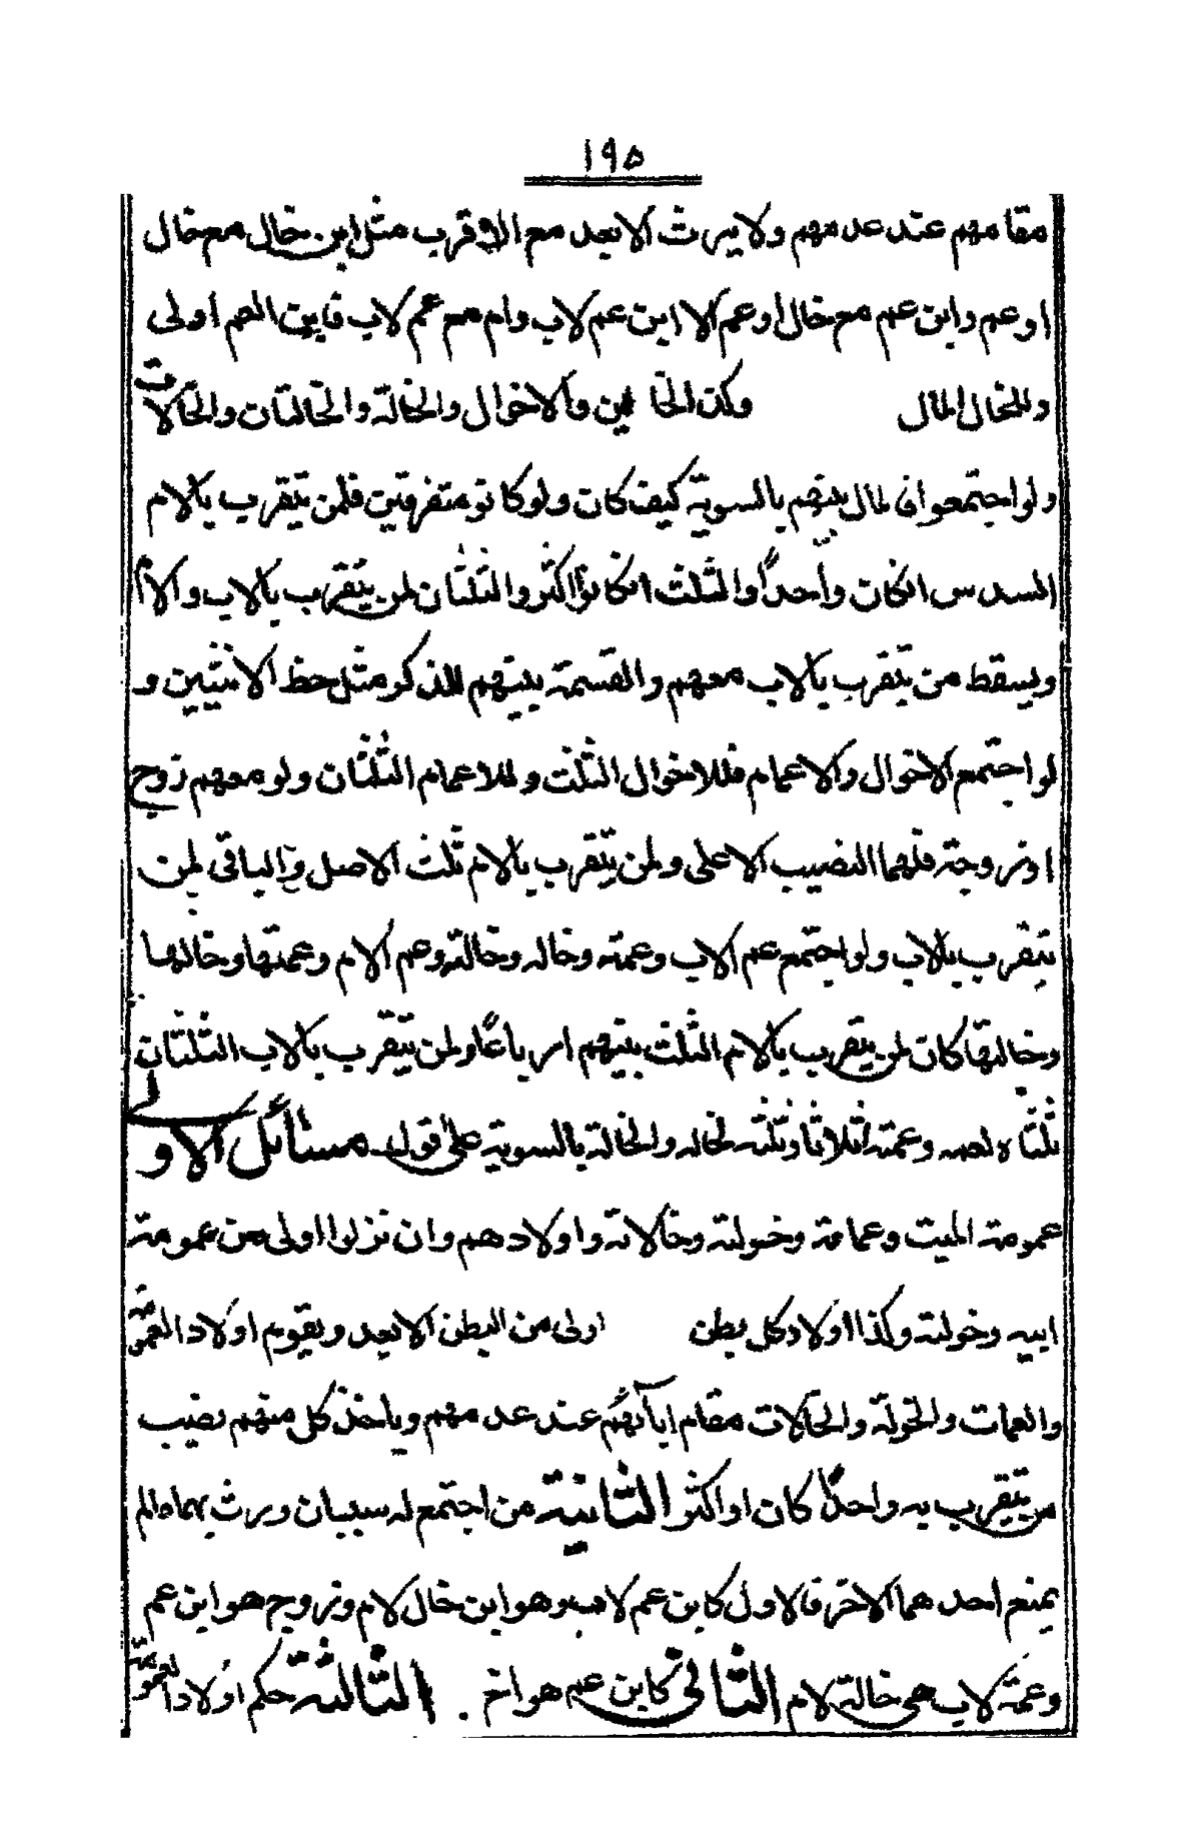 ١٩٥
مقامهم عند عدمهم ولا يرث الابعد مع الاقرب مثل ابن خال مع خال
او عم وابن عم مع خال او عم الا ابن عم لاب وام مع عم لاب فابن العم اولى
وللخال المال وكذا الخالين والاخوال والخالة والخالتان والخالات
ولو اجتمعوا فالمال بينهم بالسوية كيف كان ولو كانو متفرقين فلمن يتقرب بالام
السدس انكان واحدًا والثلث انكانوا اكثر والثلثان لمن يتقرب بالاب والام
ويسقط من يتقرب بالاب معهم والقسمة بينهم للذكر مثل حظ الانثيين و
لو اجتمع الاخوال والاعمام فللاخوال الثلث وللاعمام الثلثان ولو معهم زوج
او زوجة فلهما النصيب الاعلى ولمن يتقرب بالام ثلث الاصل والباقى لمن
يتقرب بالاب ولو اجتمع عم الاب وعمته وخاله وخالته وعم الام وعمتها وخالها
وخالتها كان لمن يتقرب بالام الثلث بينهم ارباعًا ولمن يتقرب بالاب الثلثان
ثلثاه لعمه وعمته اثلاثا وثلثه لخاله والخالة بالسوية على قول مسائل الاولى
عمومة الميت وعماته وخولته وخالاته واولادهم وان نزلوا اولى من عمومة
ابيه وخولته وكذا اولاد كل بطن اولى من البطن الابعد ويقوم اولاد العمومة
والعمات والخولة والخالات مقام ابآئهم عند عدمهم وياخذ كل منهم نصيب
من يتقرب به واحدًا كان او اكثر الثانية من اجتمع له سببان ورث بهما ما لم
يمنع احدهما الاخر فالاول كابن عم لاب وهو ابن خال لام وزوج هو ابن عم
وعمة لاب هى خالة لام الثانى كابن عم هو اخ . الثالثة حكم اولاد العمومة